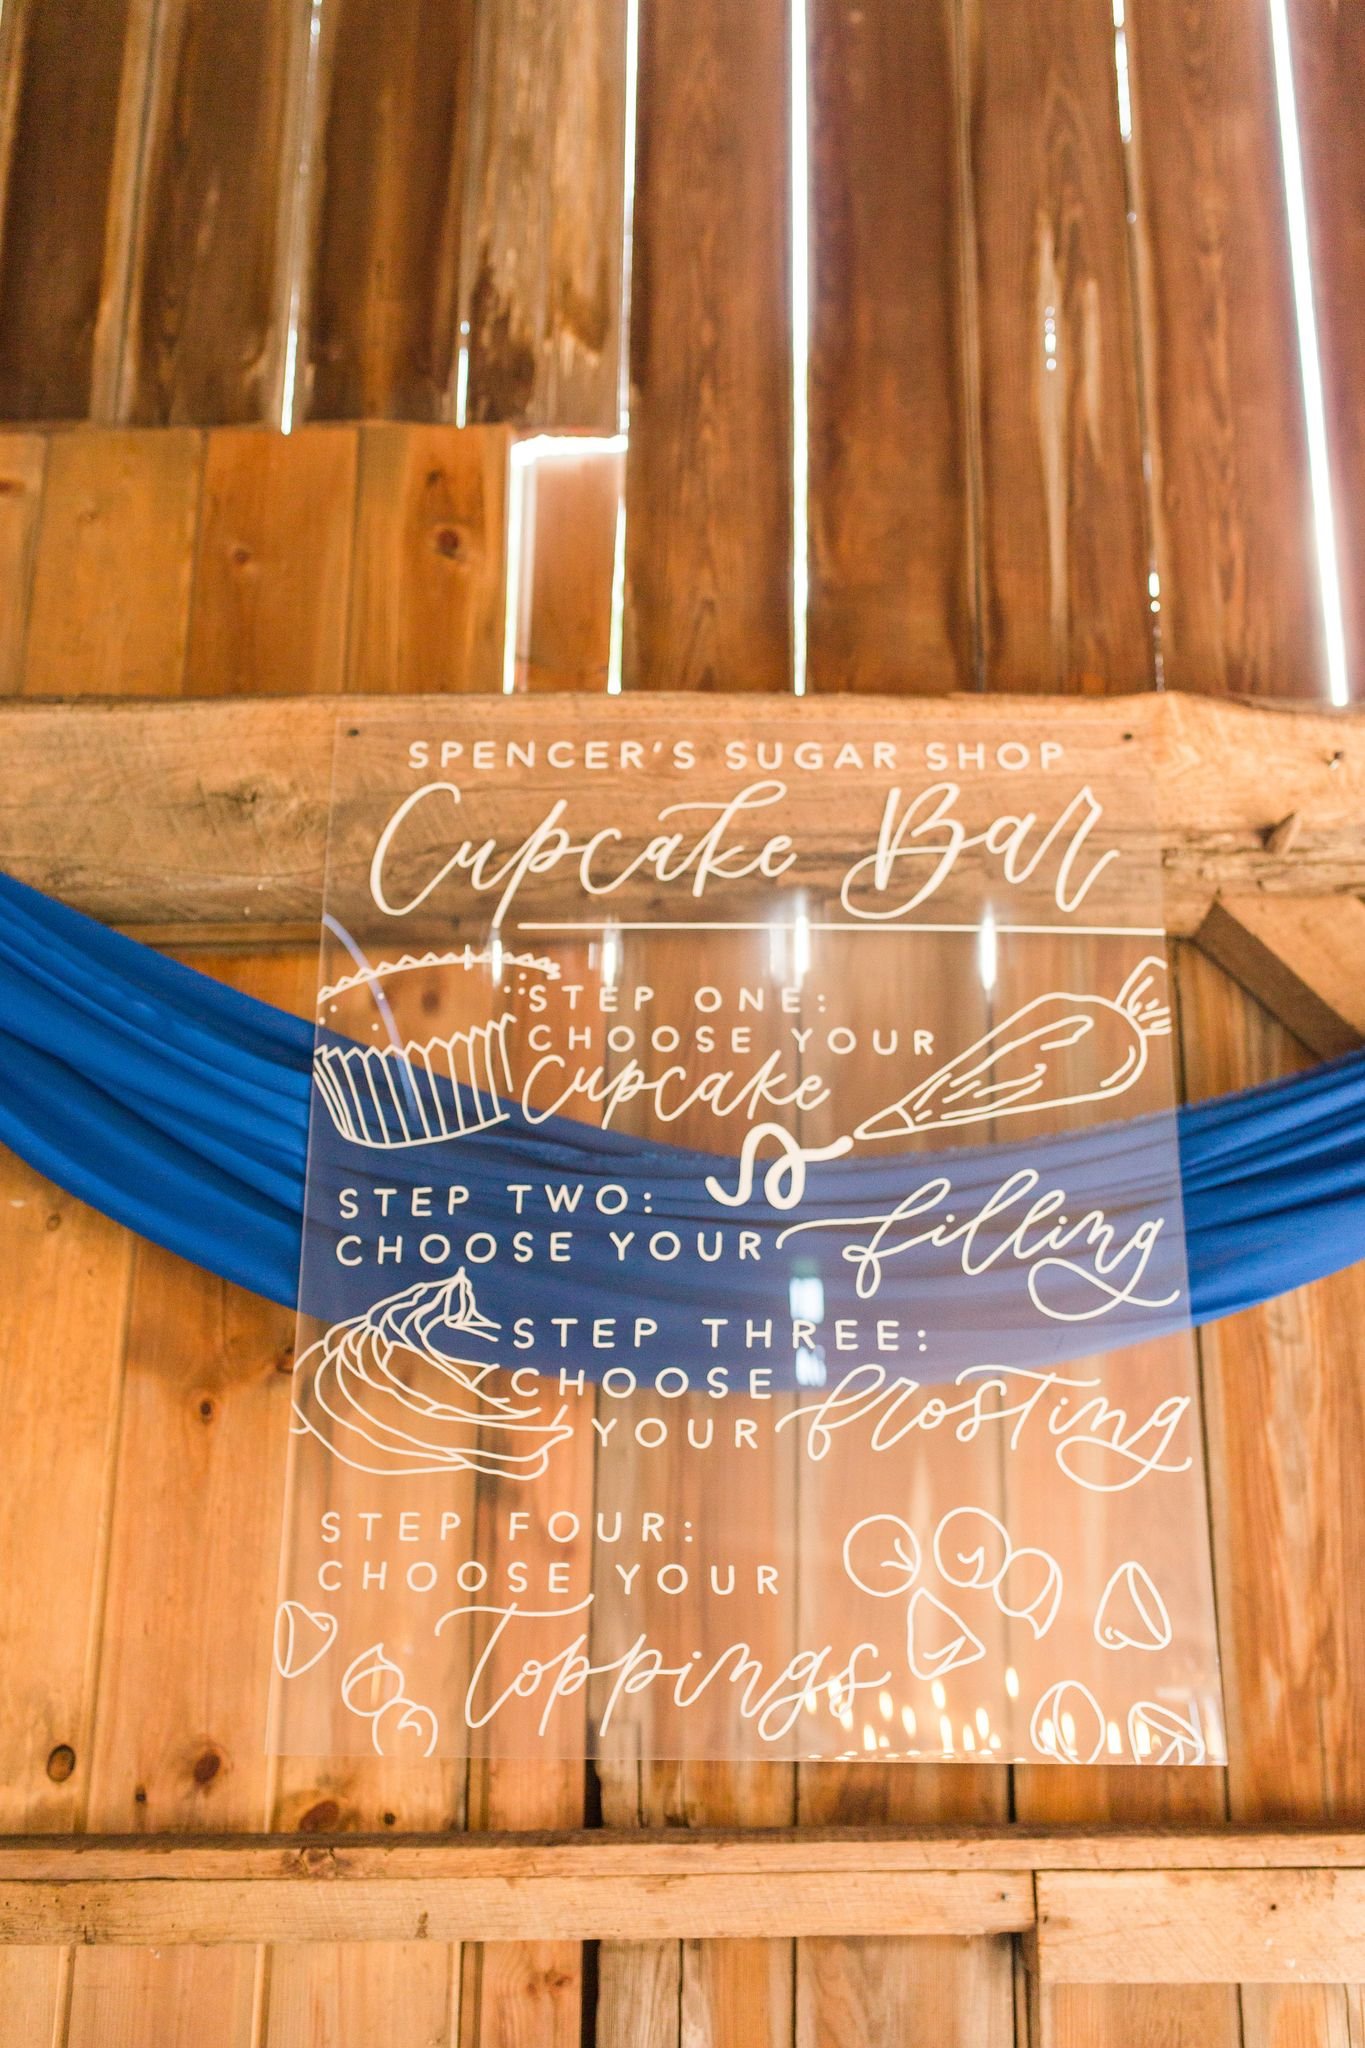 SPENCER'S SUGAR SHOP
Cupcake Bar
STEP ONE:
CHOOSE YOUR
Cupcake
STEP TWO:
CHOOSE YOUR filling
STEP THREE:
CHOOSE
YOUR frosting
STEP FOUR:
CHOOSE YOUR
Toppings